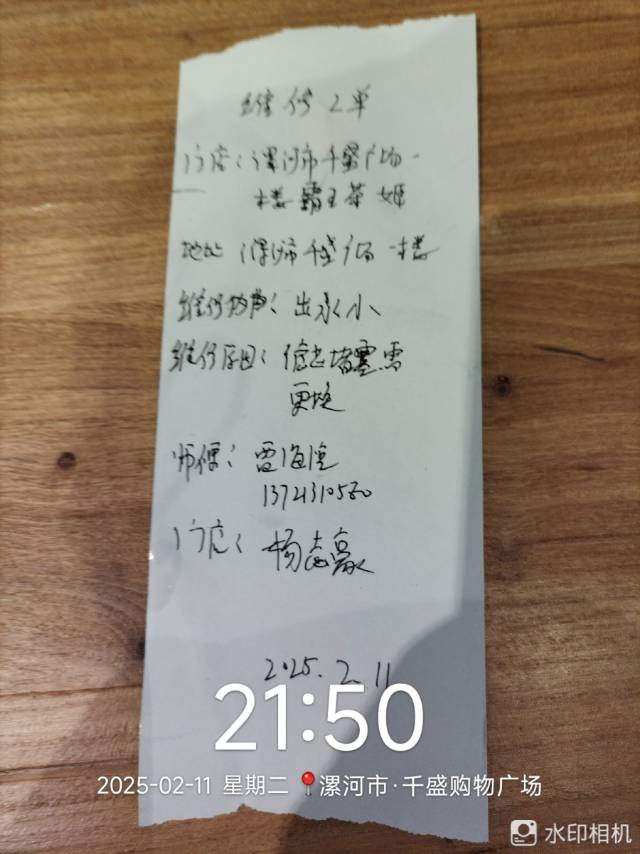 维修工单
门店：漯河市千盛广场一
楼霸王茶姬
地址 漯河市千盛广场一楼
维修物肖：出水小
维修原因：信芯堵塞需
更换
师傅：雷海
门店：杨志豪
2025.2.11
21:50
2025-02-11 星期二 漯河市·千盛购物广场
水印相机